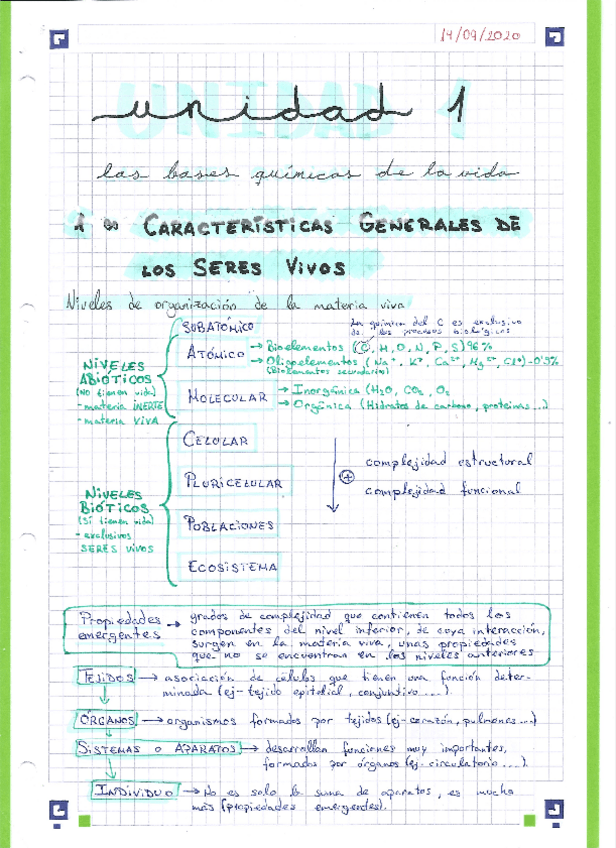 14/09/2020
unidad 1
las bases químicas de la vida
1 ∞ CARACTERÍSTICAS GENERALES DE
LOS SERES VIVOS
Niveles de organización de la materia viva
La química del C es exclusivo
de los procesos biológicos
NIVELES
ABIÓTICOS
(NO tienen vida)
- materia INERTE
- materia VIVA
SUBATÓMICO
ATÓMICO
→ Bioelementos (C, H, O, N, P, S) 96%
→ Oligoelementos (Na⁺, K⁺, Ca²⁺, Mg²⁺, Cl⁻) -0'5%
(Bioelementos secundarios)
MOLECULAR
→ Inorgánica (H₂O, CO₂, O₂
→ Orgánica (Hidratos de carbono, proteínas...)
NIVELES
BIÓTICOS
(Sí tienen vida)
- exclusivos
SERES VIVOS
CELULAR
PLURICELULAR
POBLACIONES
ECOSISTEMA
+ complejidad estructural
complejidad funcional
Propiedades emergentes → grados de complejidad que contienen todos los
componentes del nivel inferior, de cuya interacción,
surgen en la materia viva, unas propiedades
que no se encuentran en los niveles anteriores
TEJIDOS → asociación de células que tienen una función deter-
minada (ej- tejido epitelial, conjuntivo ...).
ÓRGANOS → organismos formados por tejidos (ej- corazón, pulmones...)
SISTEMAS O APARATOS → desarrollan funciones muy importantes,
formados por órganos (ej. circulatorio ...).
INDIVIDUO → No es solo la suma de aparatos, es mucho
más (propiedades emergentes).